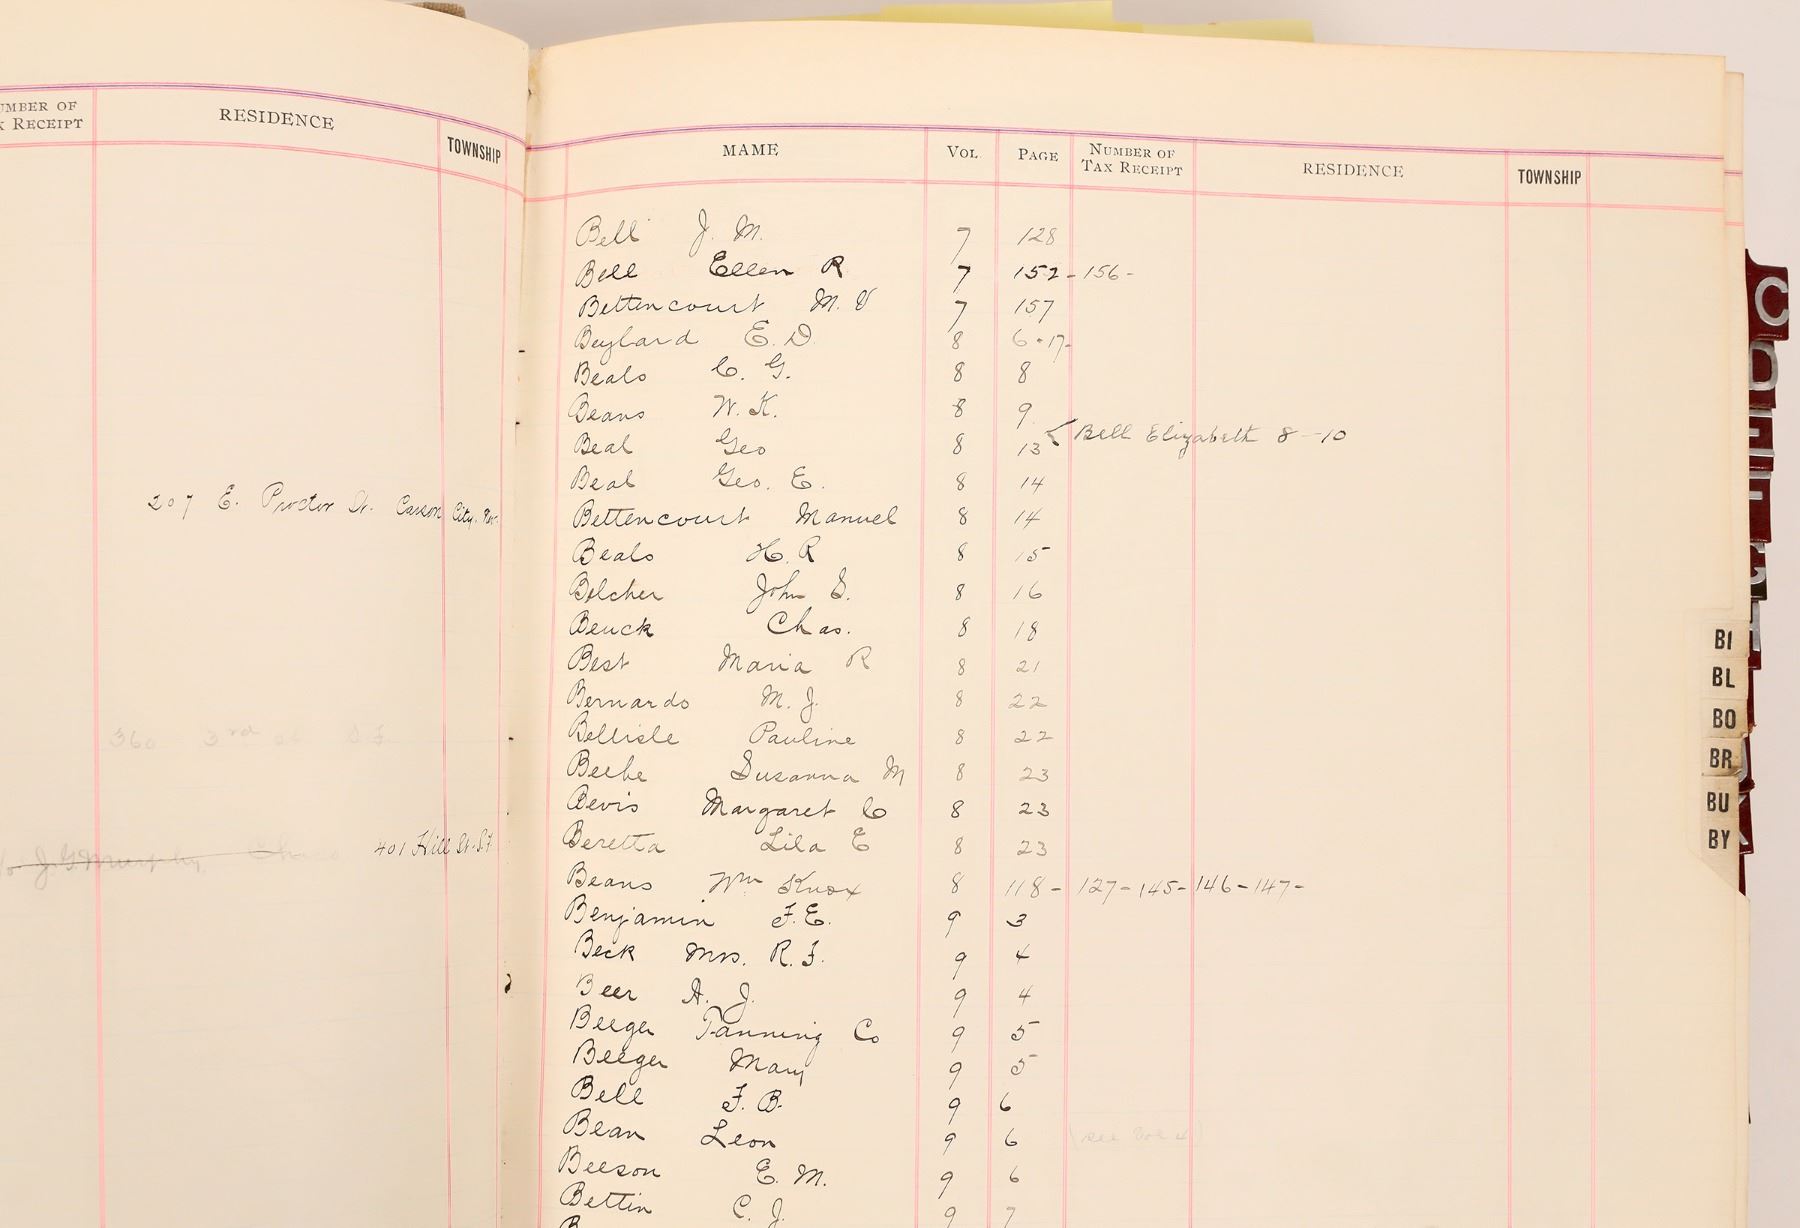 UMBER OF
X RECEIPT
RESIDENCE
TOWNSHIP
207 E. Proctor St. Carson City. Nev.
360 3rd St S.F.
J.G. Murphy
401 Hill St. S.F.
MAME VOL PAGE NUMBER OF TAX RECEIPT RESIDENCE TOWNSHIP
Bell J. M. 7 128
Bell Ellen R 7 152- 156-
Bettencourt M. V 7 157
Beylard E. D. 8 6-17-
Beals C. G. 8 8
Beans W. K. 8 9
Bell Elizabeth 8-10
Beal Geo 8 13
Beal Geo. E. 8 14
Bettencourt Manuel 8 14
Beals H. R 8 15
Belcher John S. 8 16
Beuck Chas. 8 18
Best Maria R 8 21
Bernardo M. J. 8 22
Bellisle Pauline 8 22
Beebe Susanna M 8 23
Bevis Margaret C 8 23
Beretta Lila E 8 23
Beans Wm Knox 8 118- 127-145-146-147-
Benjamin F. E. 9 3
Beck Mrs. R. F. 9 4
Beer A. J. 9 4
Beeger Tanning Co 9 5
Beeger Mary 9 5
Bell F. B. 9 6
Bean Leon 9 6 (see Vol 4)
Beeson E. M. 9 6
Bettin C. J. 9 7
C
D
E
F
G
H
BI
BL
BO
BR
BU
BY